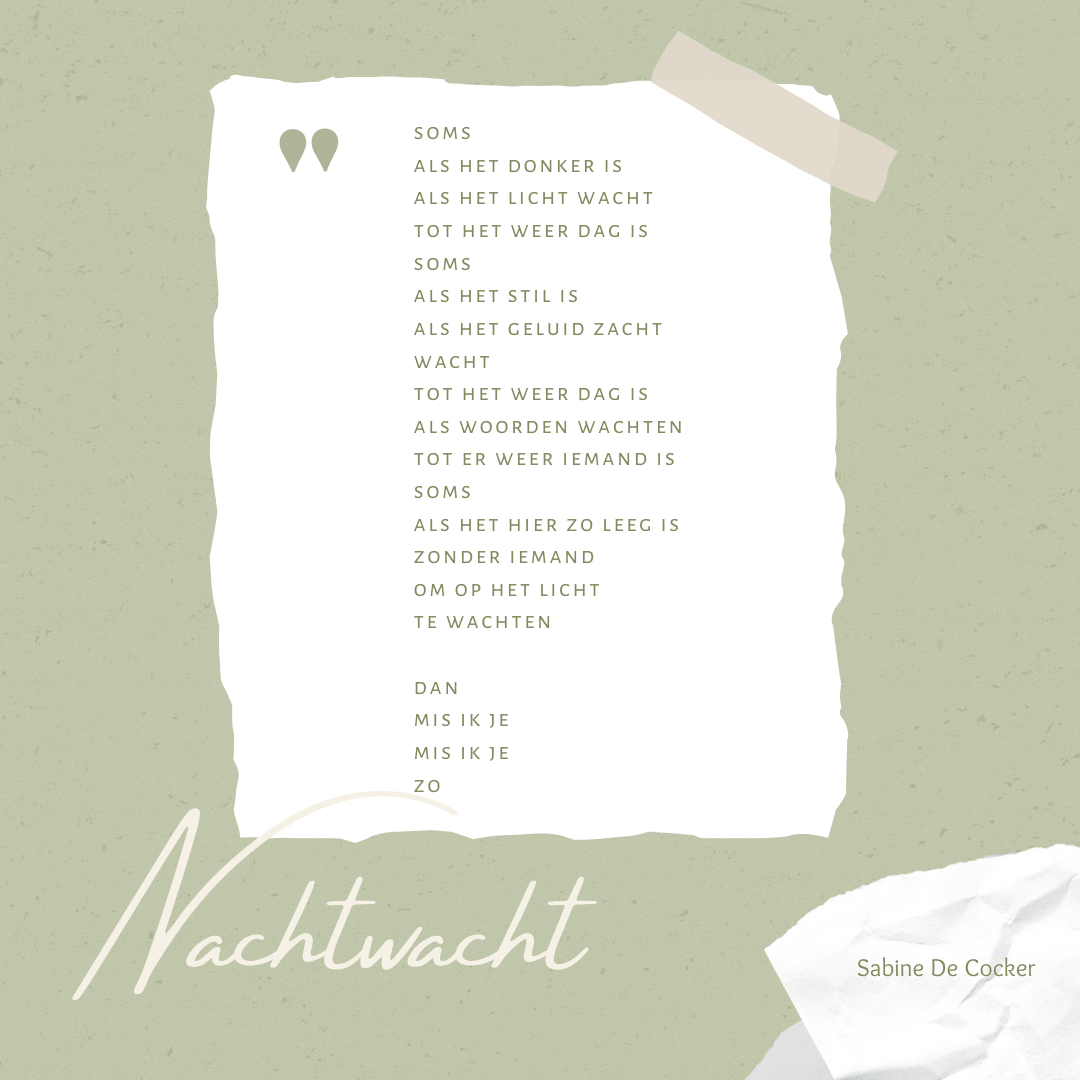 "
SOMS
ALS HET DONKER IS
ALS HET LICHT WACHT
TOT HET WEER DAG IS
SOMS
ALS HET STIL IS
ALS HET GELUID ZACHT
WACHT
TOT HET WEER DAG IS
ALS WOORDEN WACHTEN
TOT ER WEER IEMAND IS
SOMS
ALS HET HIER ZO LEEG IS
ZONDER IEMAND
OM OP HET LICHT
TE WACHTEN

DAN
MIS IK JE
MIS IK JE
ZO
Nachtwacht
Sabine De Cocker